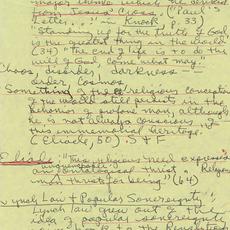 major theme which he derived
from Jesus' Cross (Paul's
letter...." in Knock, p. 33)
"Standing up for the truth of God,
is the greatest thing in the world."
(34) "The end of life is to do the
will of God, come what may."
Chaos, disorder, darkness
order, Cosmos
Something of the religious conception
of the world still persists in the
behavior of profane man, although
he is not always conscious of
this immemorial heritage."
(Eliade, 50). S + F
Eliade: "This religious need expresses
an unquenchable
ontological thirst. Religious
man thirsts for being." (64)
Lynch Law & Popular Sovereignty
Lynch law grew out of the
idea of popular sovereignty